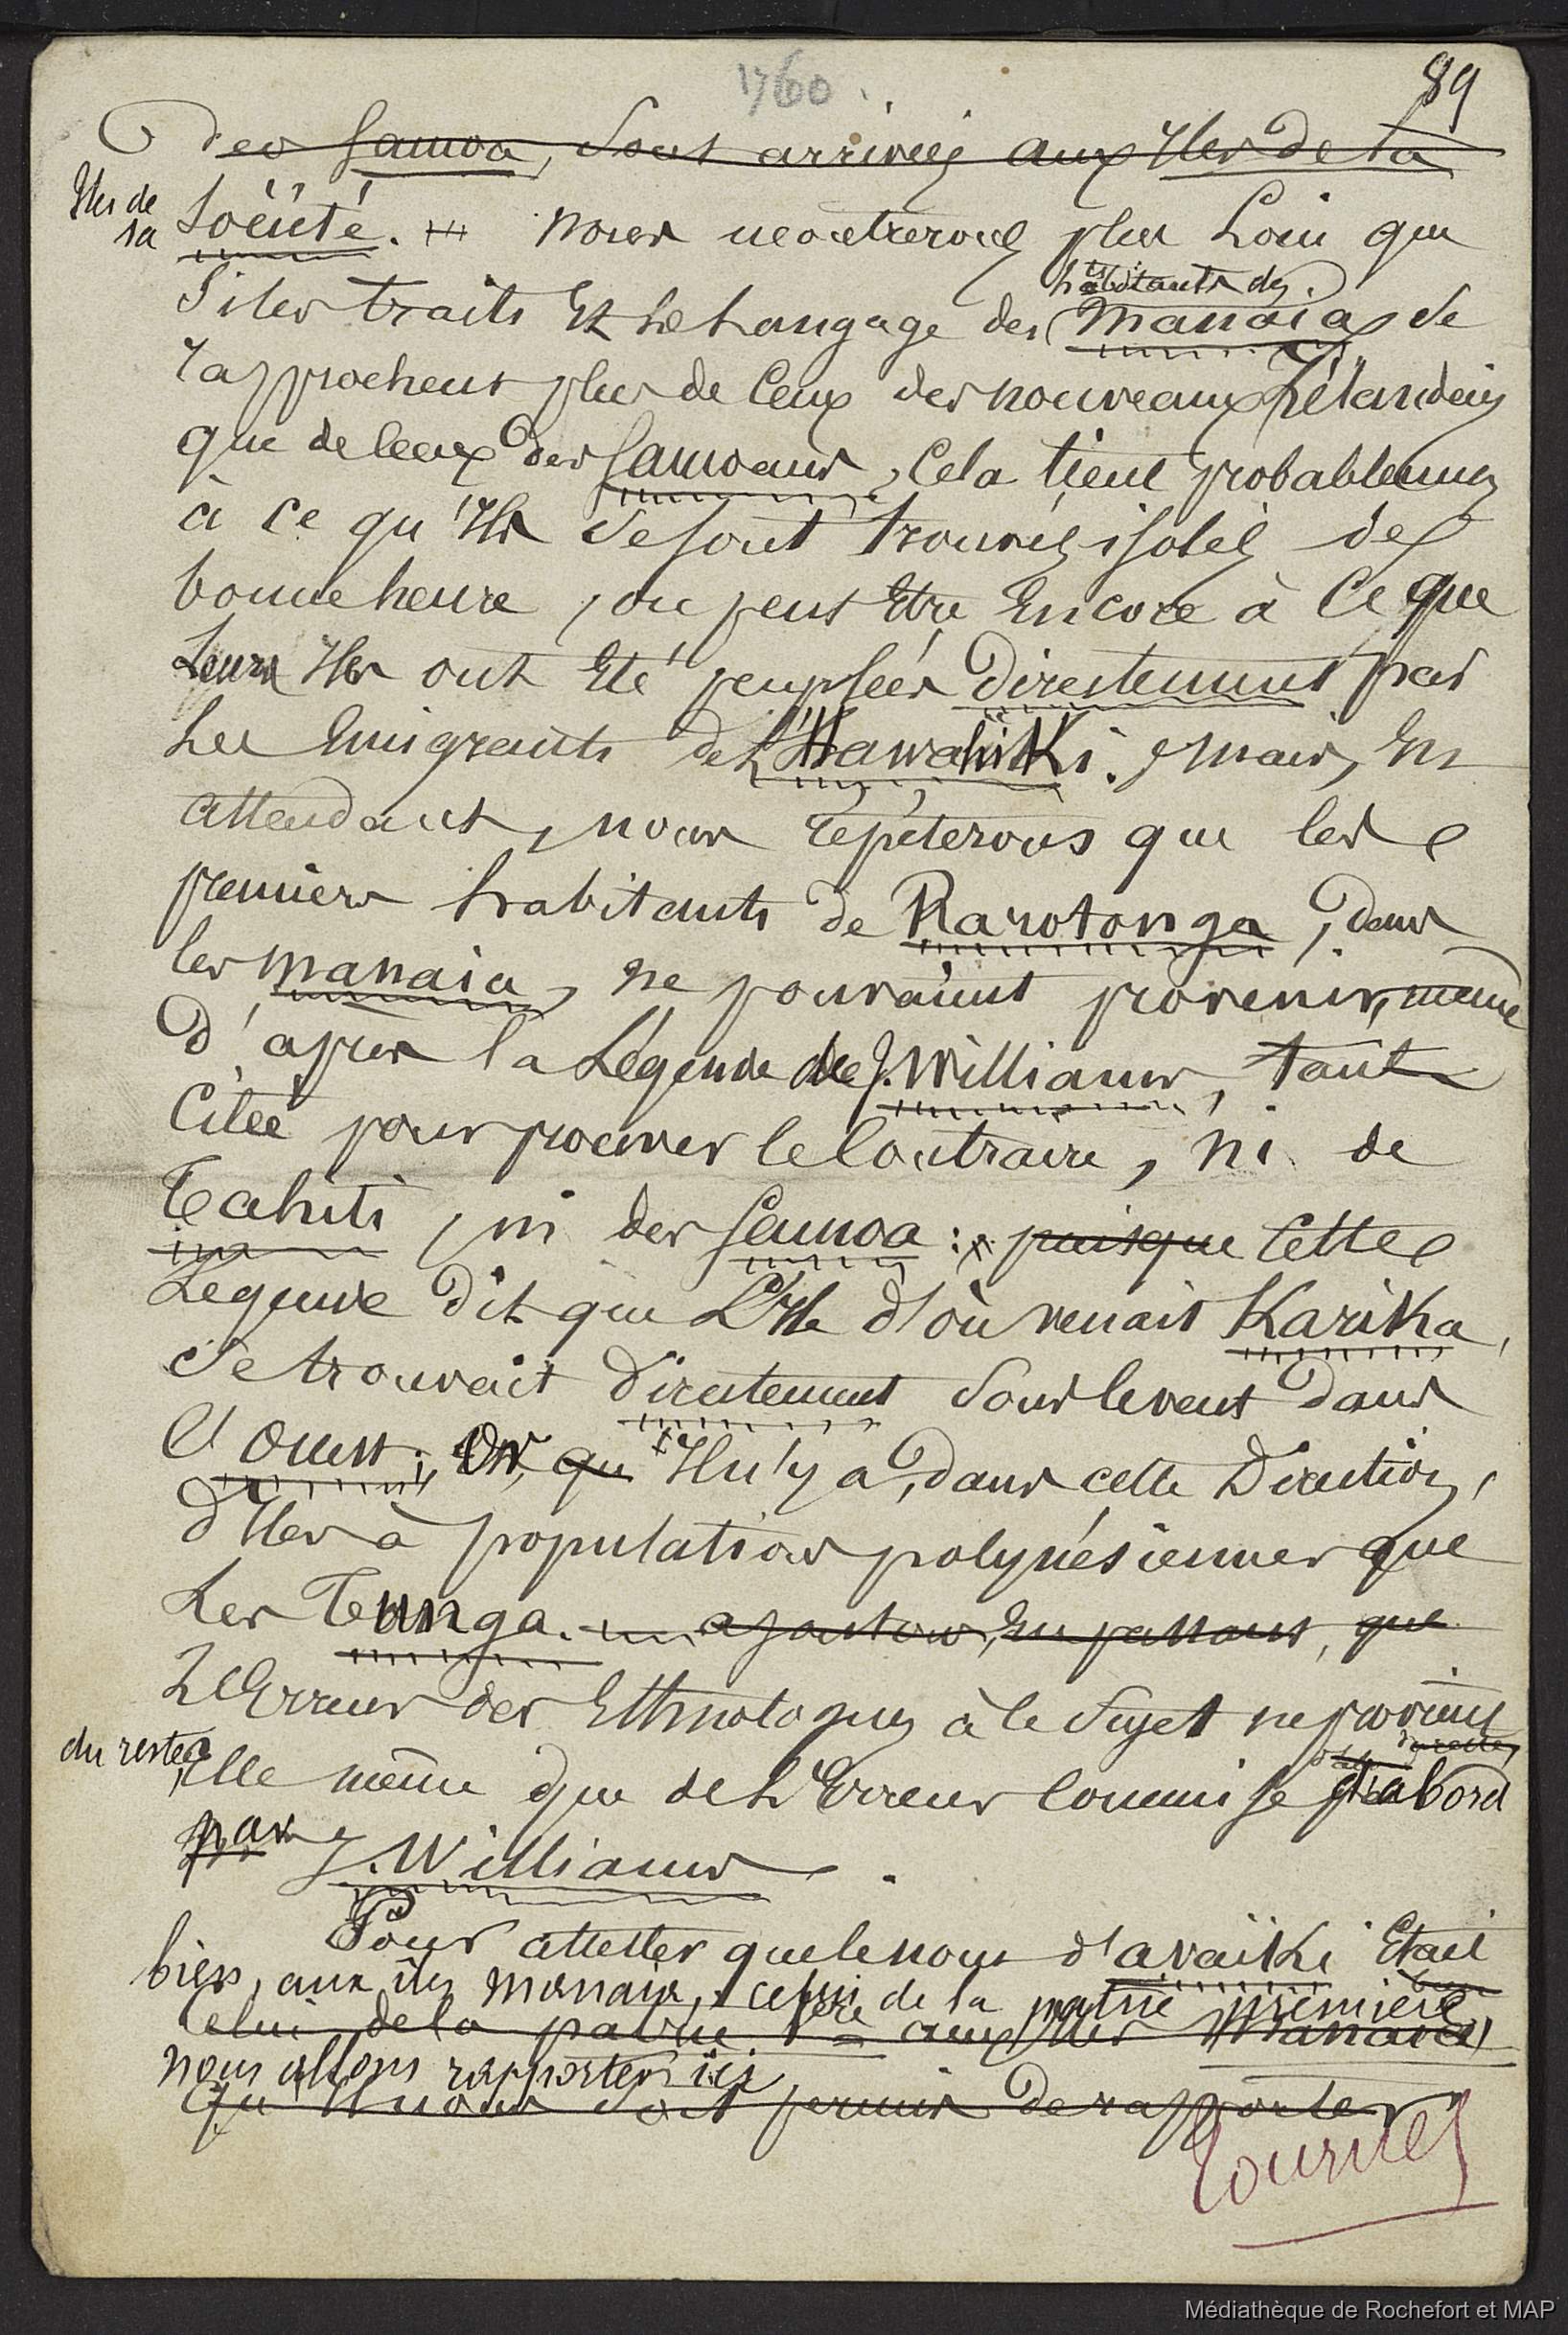 1760
89
des Samoa, sont arrivés aux Iles de la
Iles de
la
Société. Nous montrerons plus loin que
habitants des
si les traits et le langage des Manaia se
rapprochent plus de ceux des nouveaux Zélandais
que de ceux des Samoans, cela tient probablement
à ce qu'ils se sont trouvés isolés de
bonne heure, ou peut être encore à ce que
leurs Iles ont été peuplées directement par
les émigrants de l'Hawahiki. Mais, en
attendant, nous répéterons que les
premiers habitants de Rarotonga, dans
les Manaia, ne pouvaient provenir, même
d'après la Légende de J. Williams, tant
citée pour prouver le contraire, ni de
Tahiti, ni des Samoa : puisque cette
Légende dit que l'Ile d'où venait Karika,
se trouvait directement sous le vent dans
l'Ouest ; Or, que Il n'y a, dans cette Direction,
d'Iles à populations polynésiennes que
les Tunga. ajoutons, en passant, que
L'Erreur des Ethnologues à ce sujet ne provient
du reste
du reste,
elle même que de l'Erreur commise d'abord
par J. Williams.
Pour attester que le nom d'avaïki était
bien, aux îles manaia, celui de la patrie première
Celui de la patrie 1ère aux Iles Manaia,
nous allons rapporter ici
qu'il nous soit permis de rapporter
Tournez
Médiathèque de Rochefort et MAP